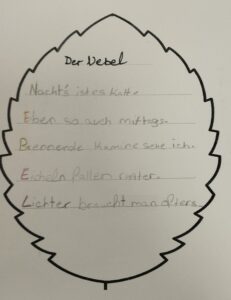 Der Nebel
Nachts ist es kalt.
Eben so auch mittags.
Brennende Kamine sehe ich.
Eicheln fallen runter.
Lichter braucht man öfters.